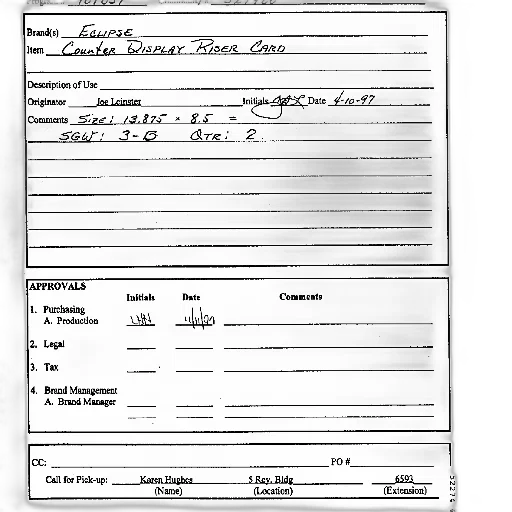 Brand(s) ECLIPSE
Item COUNTER DISPLAY RISER CARD
Description of Use
Originator Joe Leinster Initials Date 4-10-97
Comments SIZE: 13.875 × 8.5 =
SGW: 3-B QTR: 2
APPROVALS
Initials Date Comments
1. Purchasing
A. Production
2. Legal
3. Tax
4. Brand Management
A. Brand Manager
CC: PO #
Call for Pick-up: Karen Hughes 5 Rey. Bldg 6593
(Name) (Location) (Extension)